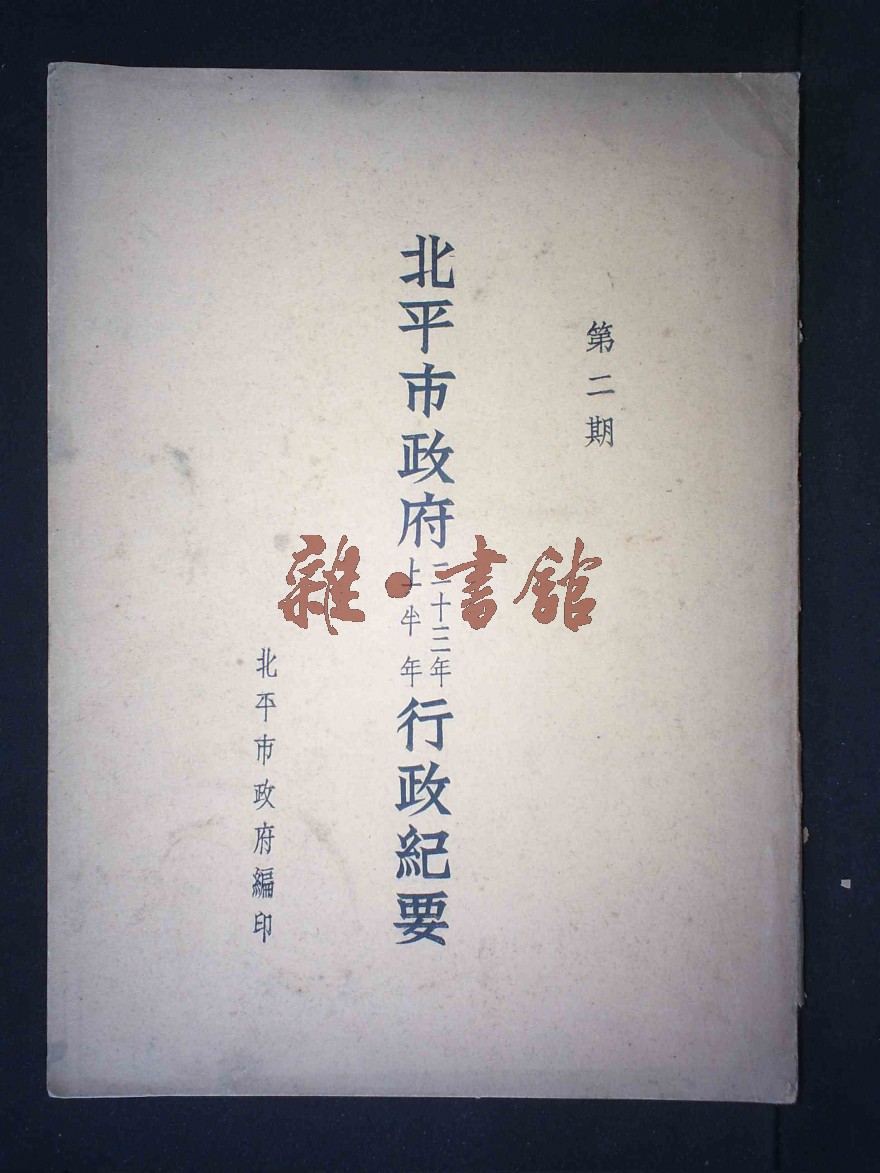 第二期
北平市政府二十三年上半年行政紀要
北平市政府編印
雜·書館